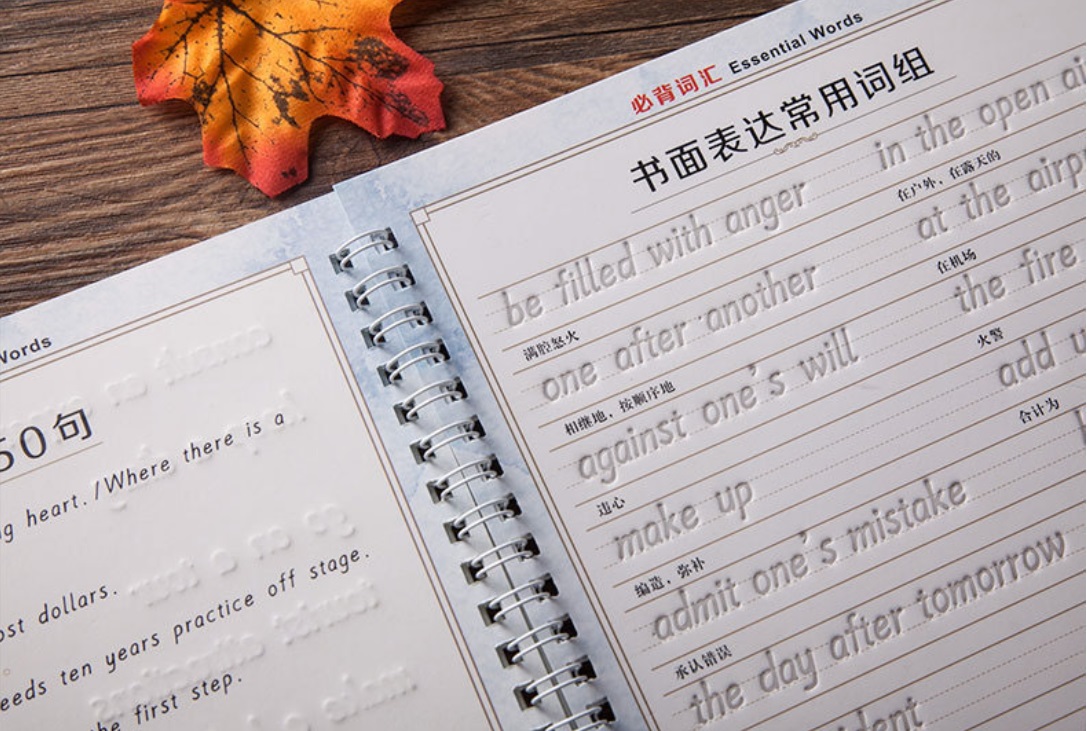 Words
50句
ng heart./Where there is a
ost dollars.
eeds ten years practice off stage.
he first step.
必背词汇 Essential Words
书面表达常用词组
be filled with anger
满腔怒火
in the open
在户外，在露天的
one after another
相继地，按顺序地
at the
在机场
against one's will
违心
the fire
火警
make up
编造，弥补
add
合计为
admit one's mistake
承认错误
the day after tomorrow